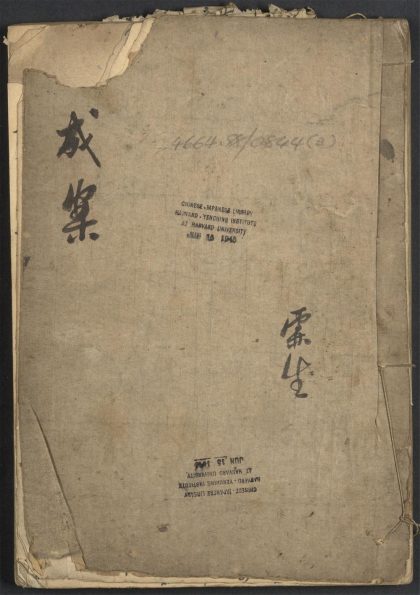 成案
4664.88/0844(2)
CHINESE-JAPANESE LIBRARY
HARVARD-YENCHING INSTITUTE
AT HARVARD UNIVERSITY
霖生
CHINESE-JAPANESE LIBRARY
HARVARD-YENCHING INSTITUTE
AT HARVARD UNIVERSITY